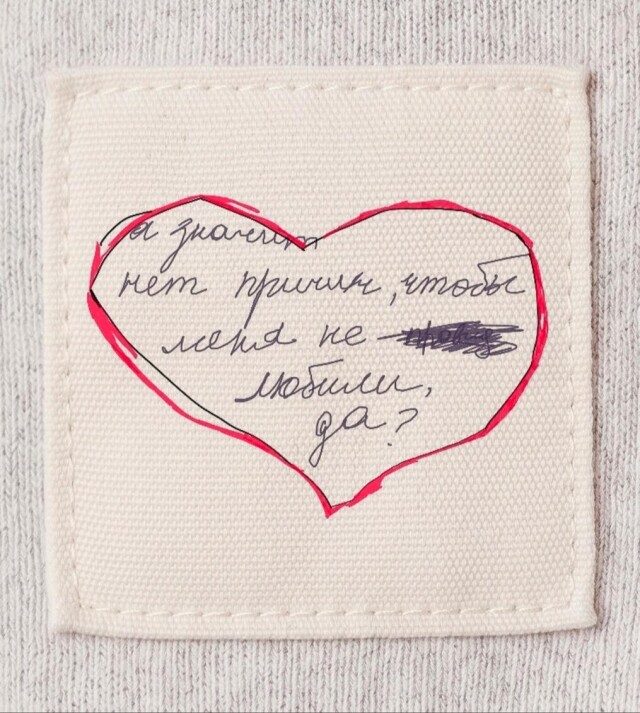 а значит
нет причин, чтобы
меня не
любили,
да?